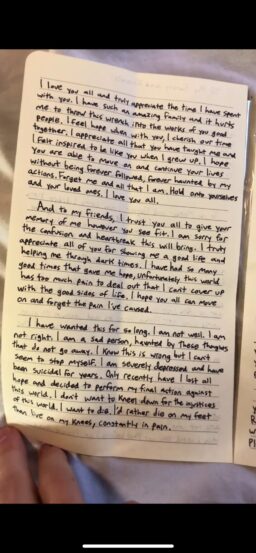 I love you all and truly appreciate the time I have spent
with you. I have such an amazing family and it hurts
me to throw this wrench into the works of you good
people. I feel hope when with you, I cherish our time
together. I appreciate all that you have taught me and
I felt inspired to be like you when I grew up. I hope
you are able to move on and continue your lives
without being forever followed, forever haunted by my
actions. Forget me and all that I am. Hold onto yourselves
and your loved ones. I love you all.
And to my friends, I trust you all to give your
memory of me however you see fit. I am sorry for
the confusion and heartbreak this will bring. I truly
appreciate all of you for showing me a good life and
helping me through dark times. I have had so many
good times that gave me hope, unfortunately this world
has too much pain to deal out that I can't cover up
with the good sides of life. I hope you all can move
on and forget the pain I've caused.
I have wanted this for so long. I am not well. I am
not right. I am a sad person, haunted by these thoughts
that do not go away. I know this is wrong but I can't
seem to stop myself. I am severely depressed and have
been suicidal for years. Only recently have I lost all
hope and decided to perform my final action against
this world. I don't want to kneel down for the injustices
of this world. I want to die. I'd rather die on my feet
than live on my knees, constantly in pain.